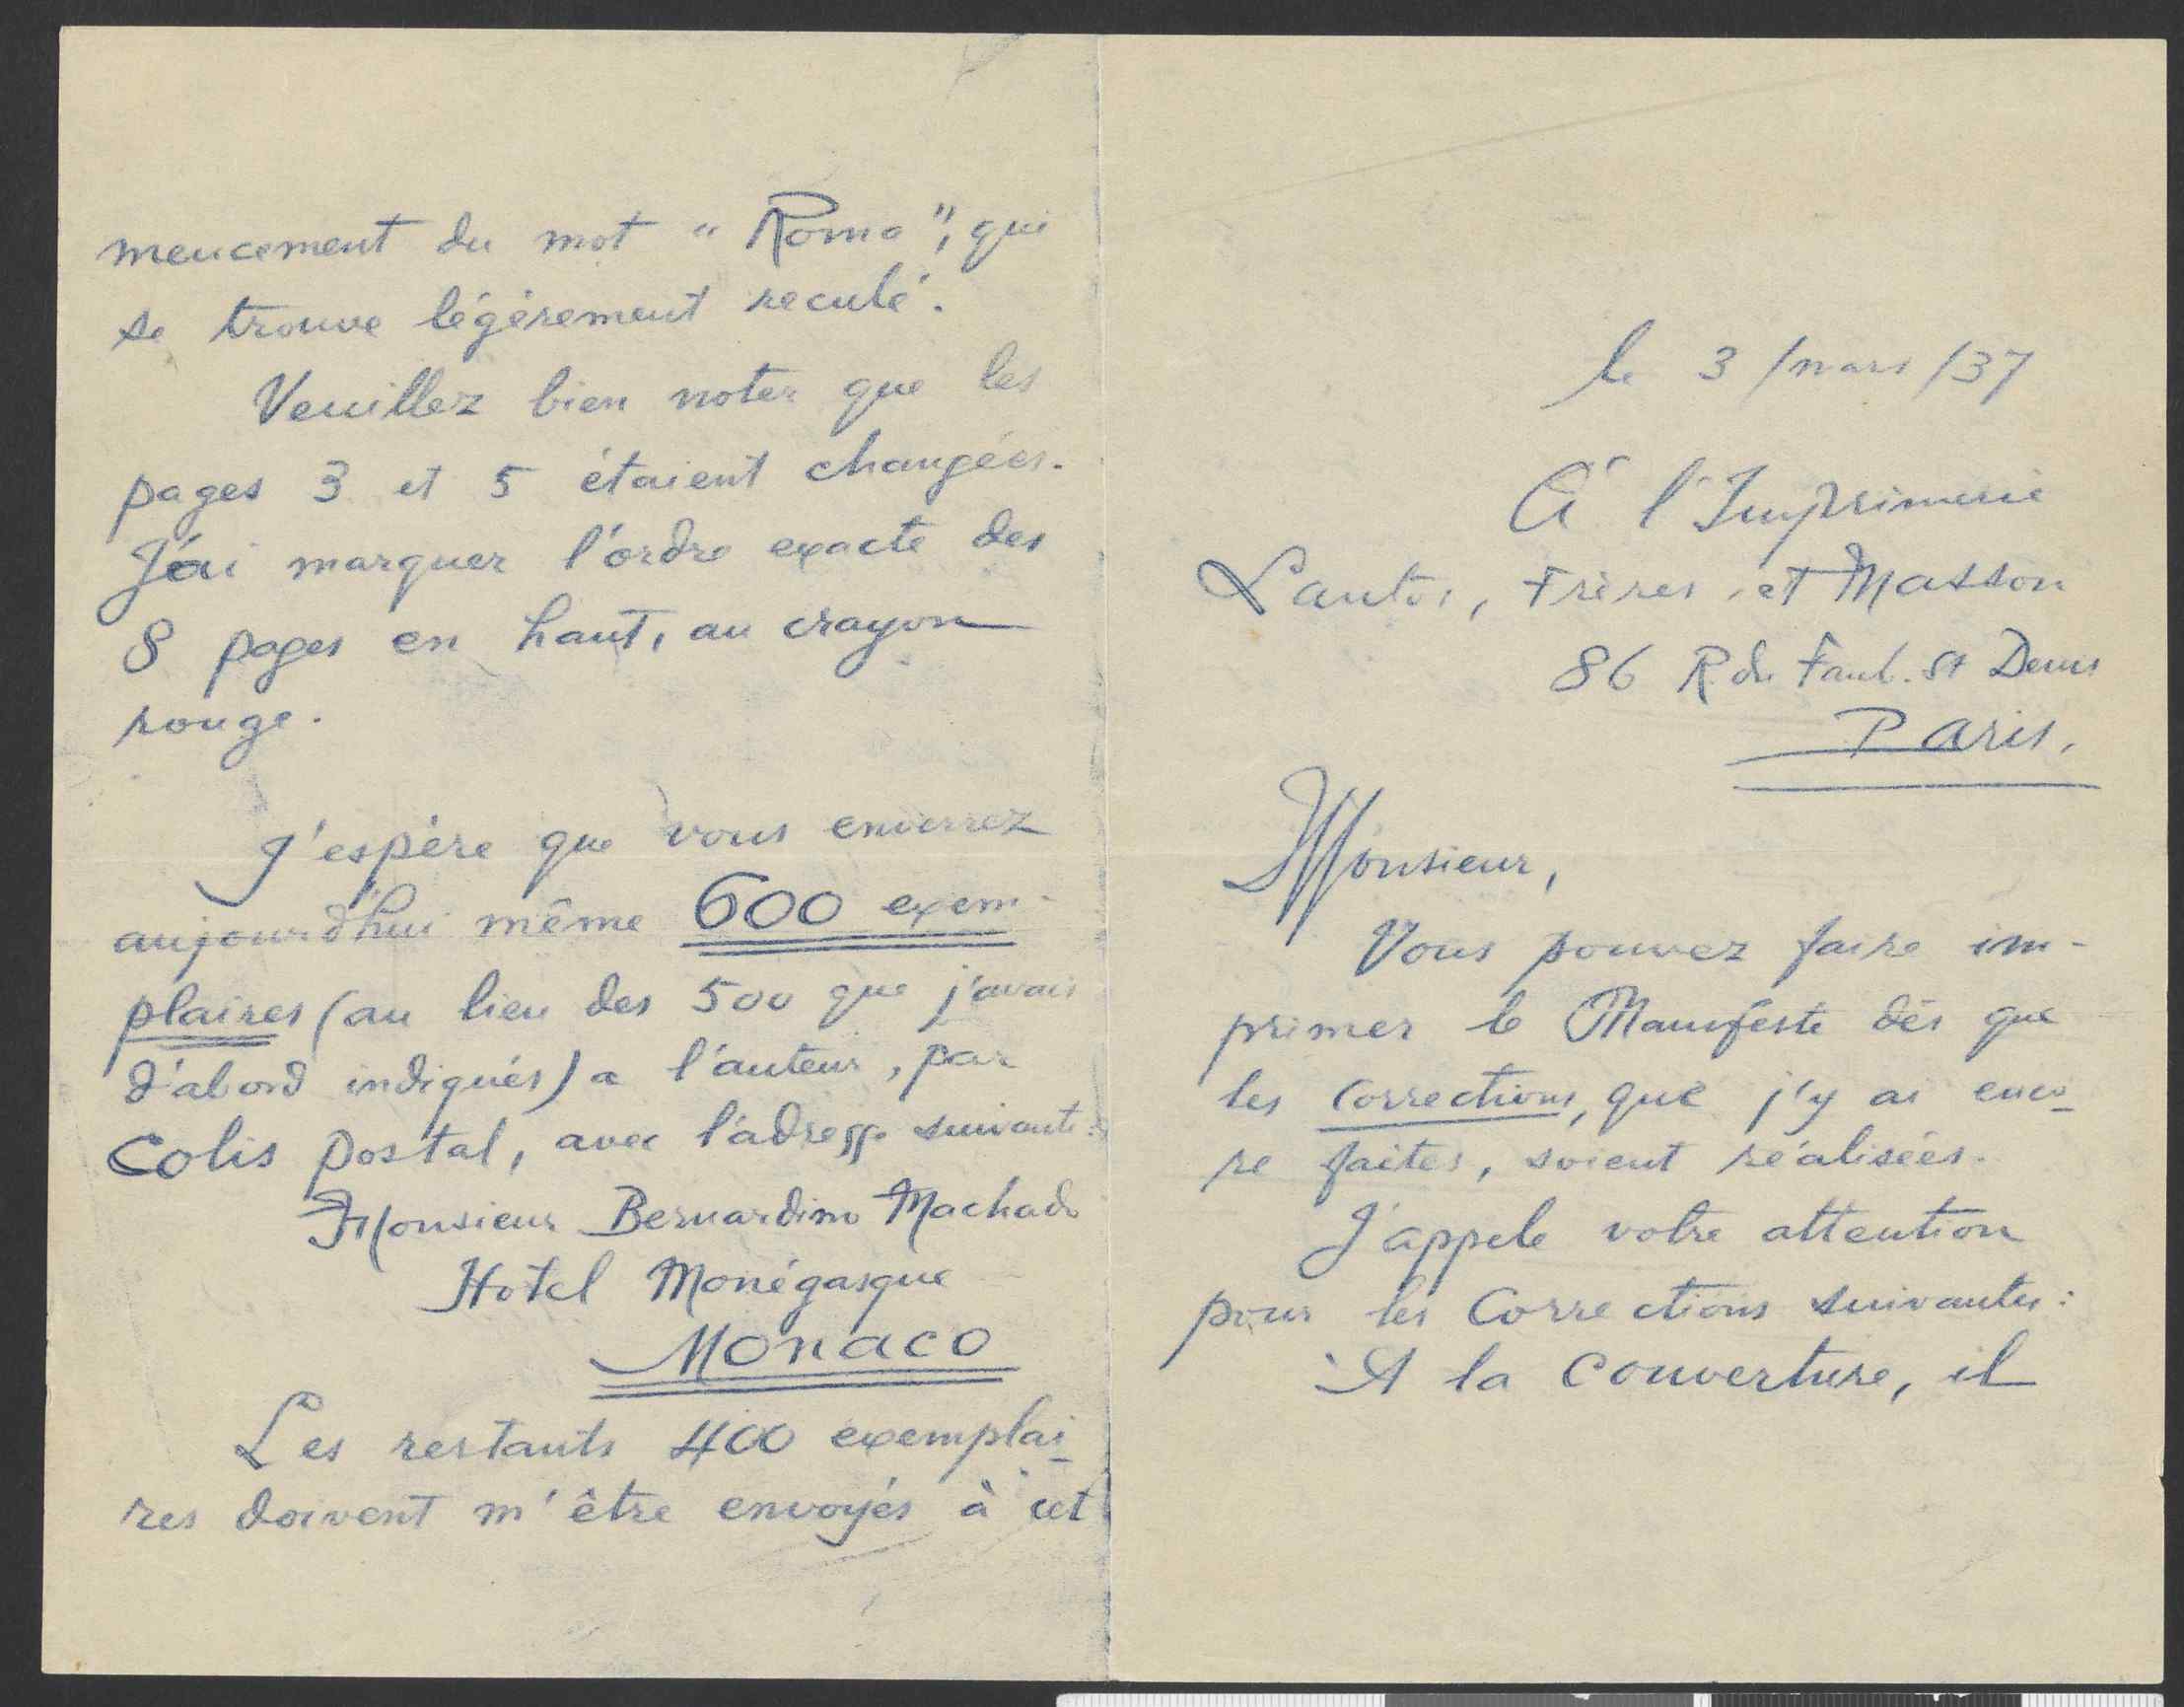 le 3/mars/37
À l'Imprimerie
Lantos, Frères, et Masson
86 R du Faub. St Denis
Paris.
Monsieur,
Vous pouvez faire im-
primer le Manifeste dès que
les corrections, que j'y ai enco-
re faites, soient réalisées.
J'appele votre attention
pour les corrections suivantes:
À la couverture, il
mencement du mot "Roma", qui
se trouve légérement reculé.
Veuillez bien noter que les
pages 3 et 5 étaient changées.
J'ai marquer l'ordre exacte des
8 pages en haut, au crayon
rouge.
J'espère que vous enverrez
aujourd'hui même 600 exem-
plaires (au lieu des 500 que j'avais
d'abord indiqués) a l'auteur, par
Colis postal, avec l'adresse suivante:
Monsieur Bernardino Machado
Hotel Monégasque
Monaco
Les restants 400 exemplai-
res doivent m'être envoyés à cet